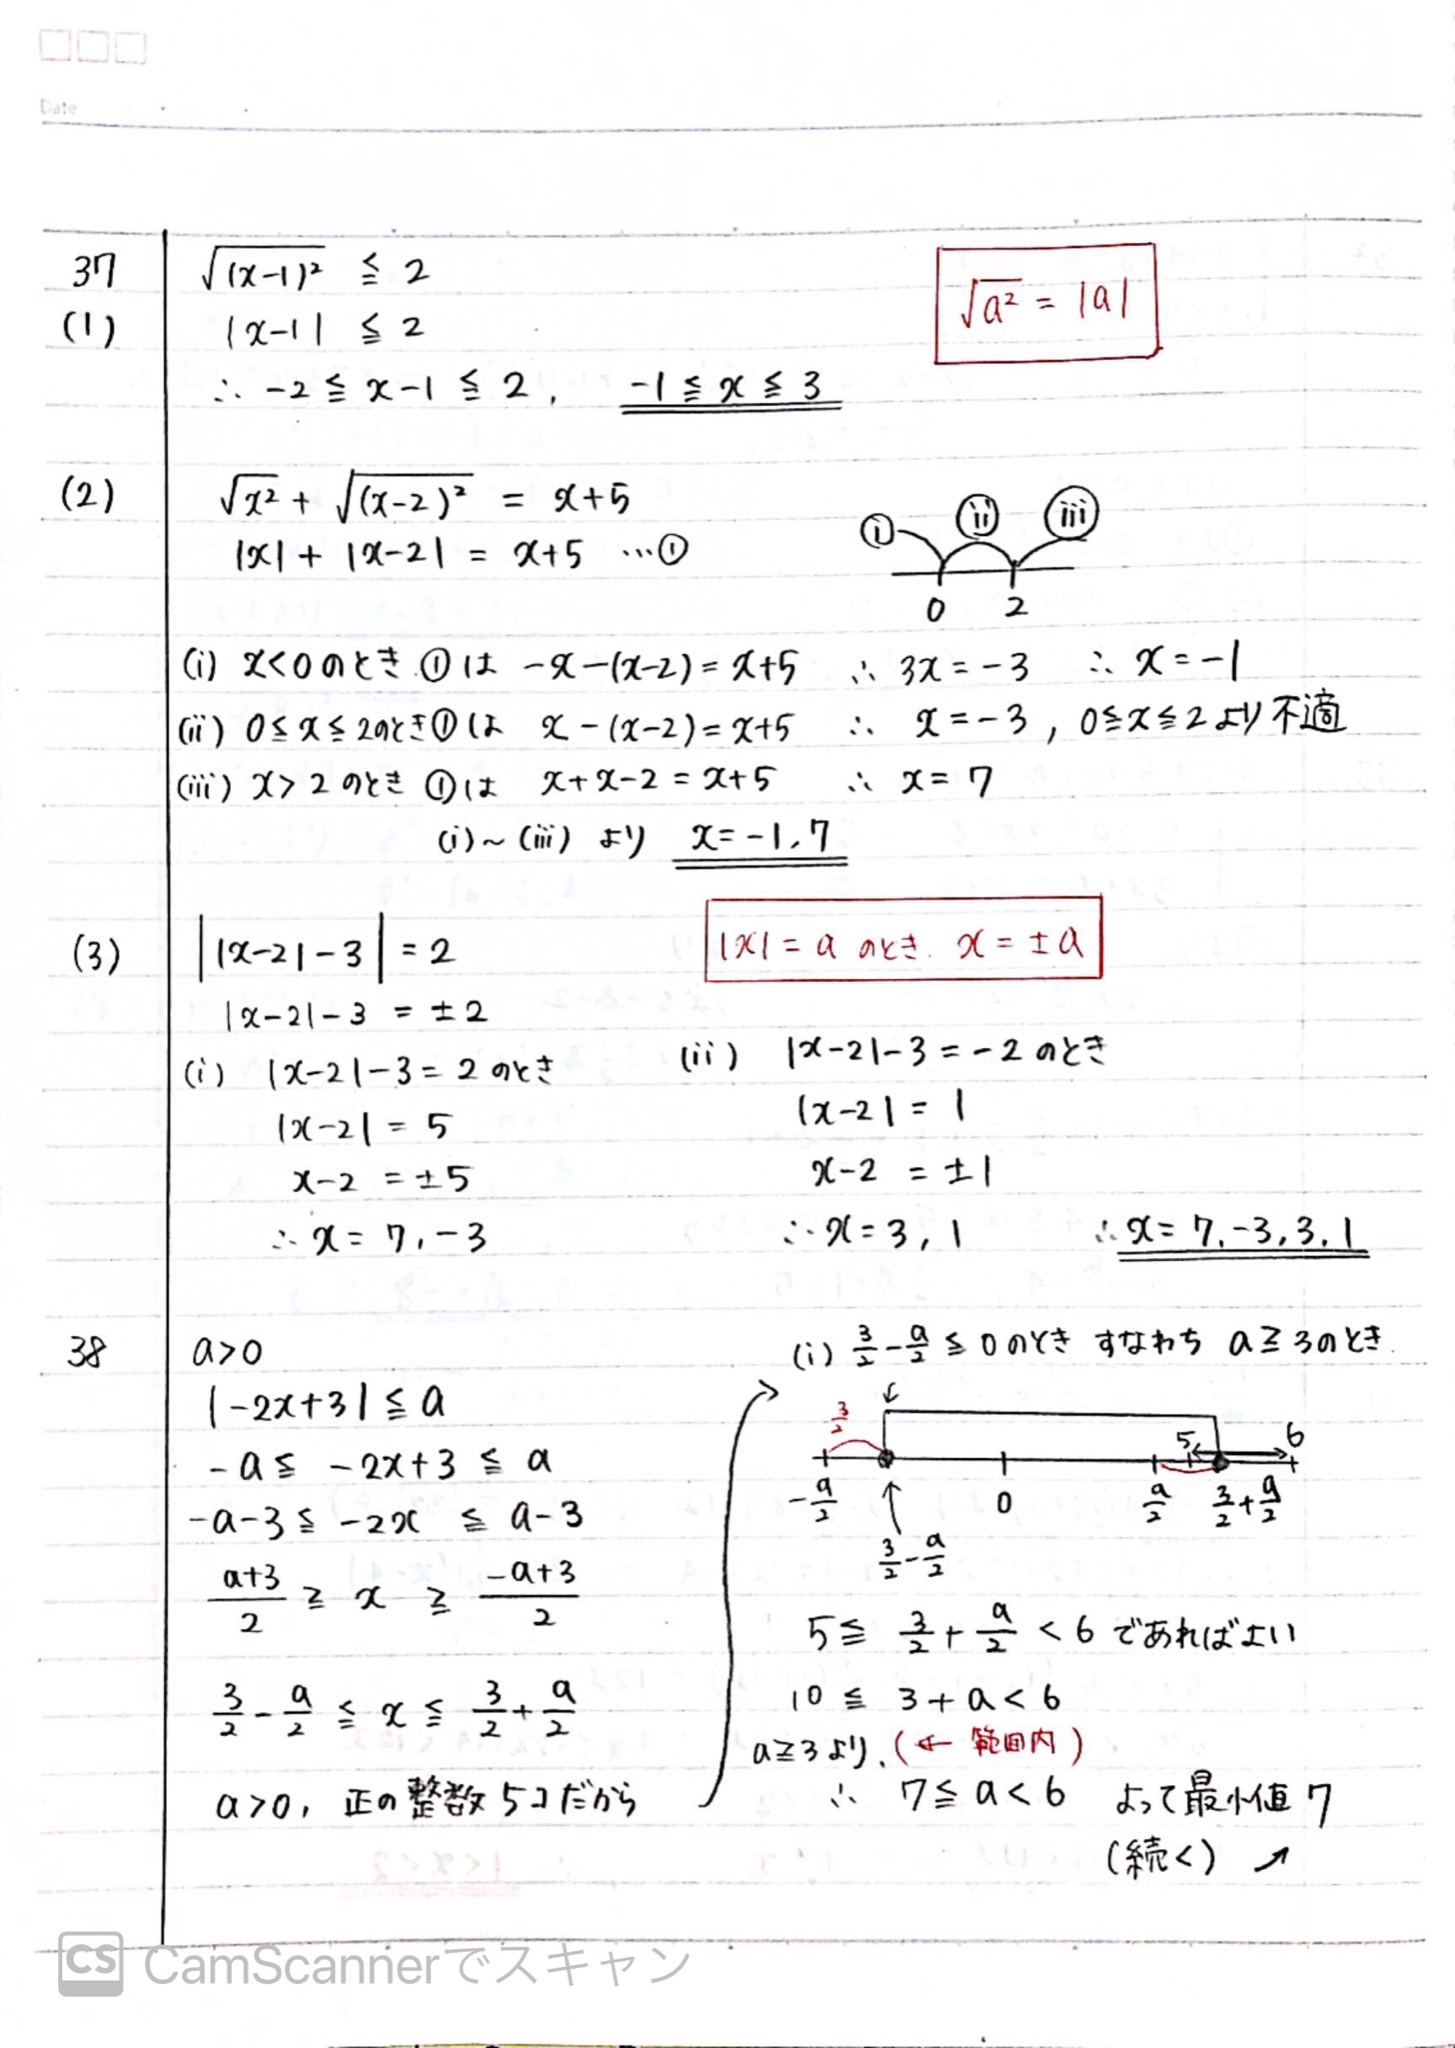 Date
37
√(x-1)² ≦ 2
√a² = |a|
(1)
|x-1| ≦ 2
∴ -2 ≦ x-1 ≦ 2, -1 ≦ x ≦ 3
(2)
√x² + √(x-2)² = x+5
|x| + |x-2| = x+5 …①
ⅰ ⅱ ⅲ
0 2
(i) x<0のとき ①は -x-(x-2)=x+5 ∴ 3x=-3 ∴ x=-1
(ii) 0≦x≦2のとき①は x-(x-2)=x+5 ∴ x=-3, 0≦x≦2より不適
(iii) x>2のとき ①は x+x-2=x+5 ∴ x=7
(i)~(iii) より x=-1, 7
(3)
||x-2|-3|=2
|x|=a のとき. x=±a
|x-2|-3 = ±2
(i) |x-2|-3=2 のとき
|x-2| = 5
x-2 = ±5
∴ x = 7, -3
(ii) |x-2|-3=-2 のとき
|x-2| = 1
x-2 = ±1
∴ x=3, 1
∴ x=7, -3, 3, 1
38
a>0
|-2x+3| ≦ a
-a ≦ -2x+3 ≦ a
-a-3 ≦ -2x ≦ a-3
a+3/2 ≧ x ≧ -a+3/2
3/2 - a/2 ≦ x ≦ 3/2 + a/2
a>0, 正の整数5コだから
(i) 3/2 - a/2 ≦ 0のとき すなわち a≧3のとき.
3/2 5 6
-a/2 0 a/2 3/2+a/2
3/2-a/2
5≦ 3/2 + a/2 <6 であればよい
10 ≦ 3+a<6
a≧3より. (← 範囲内)
∴ 7≦a<6 よって最小値7
(続く) ↗
CS CamScannerでスキャン